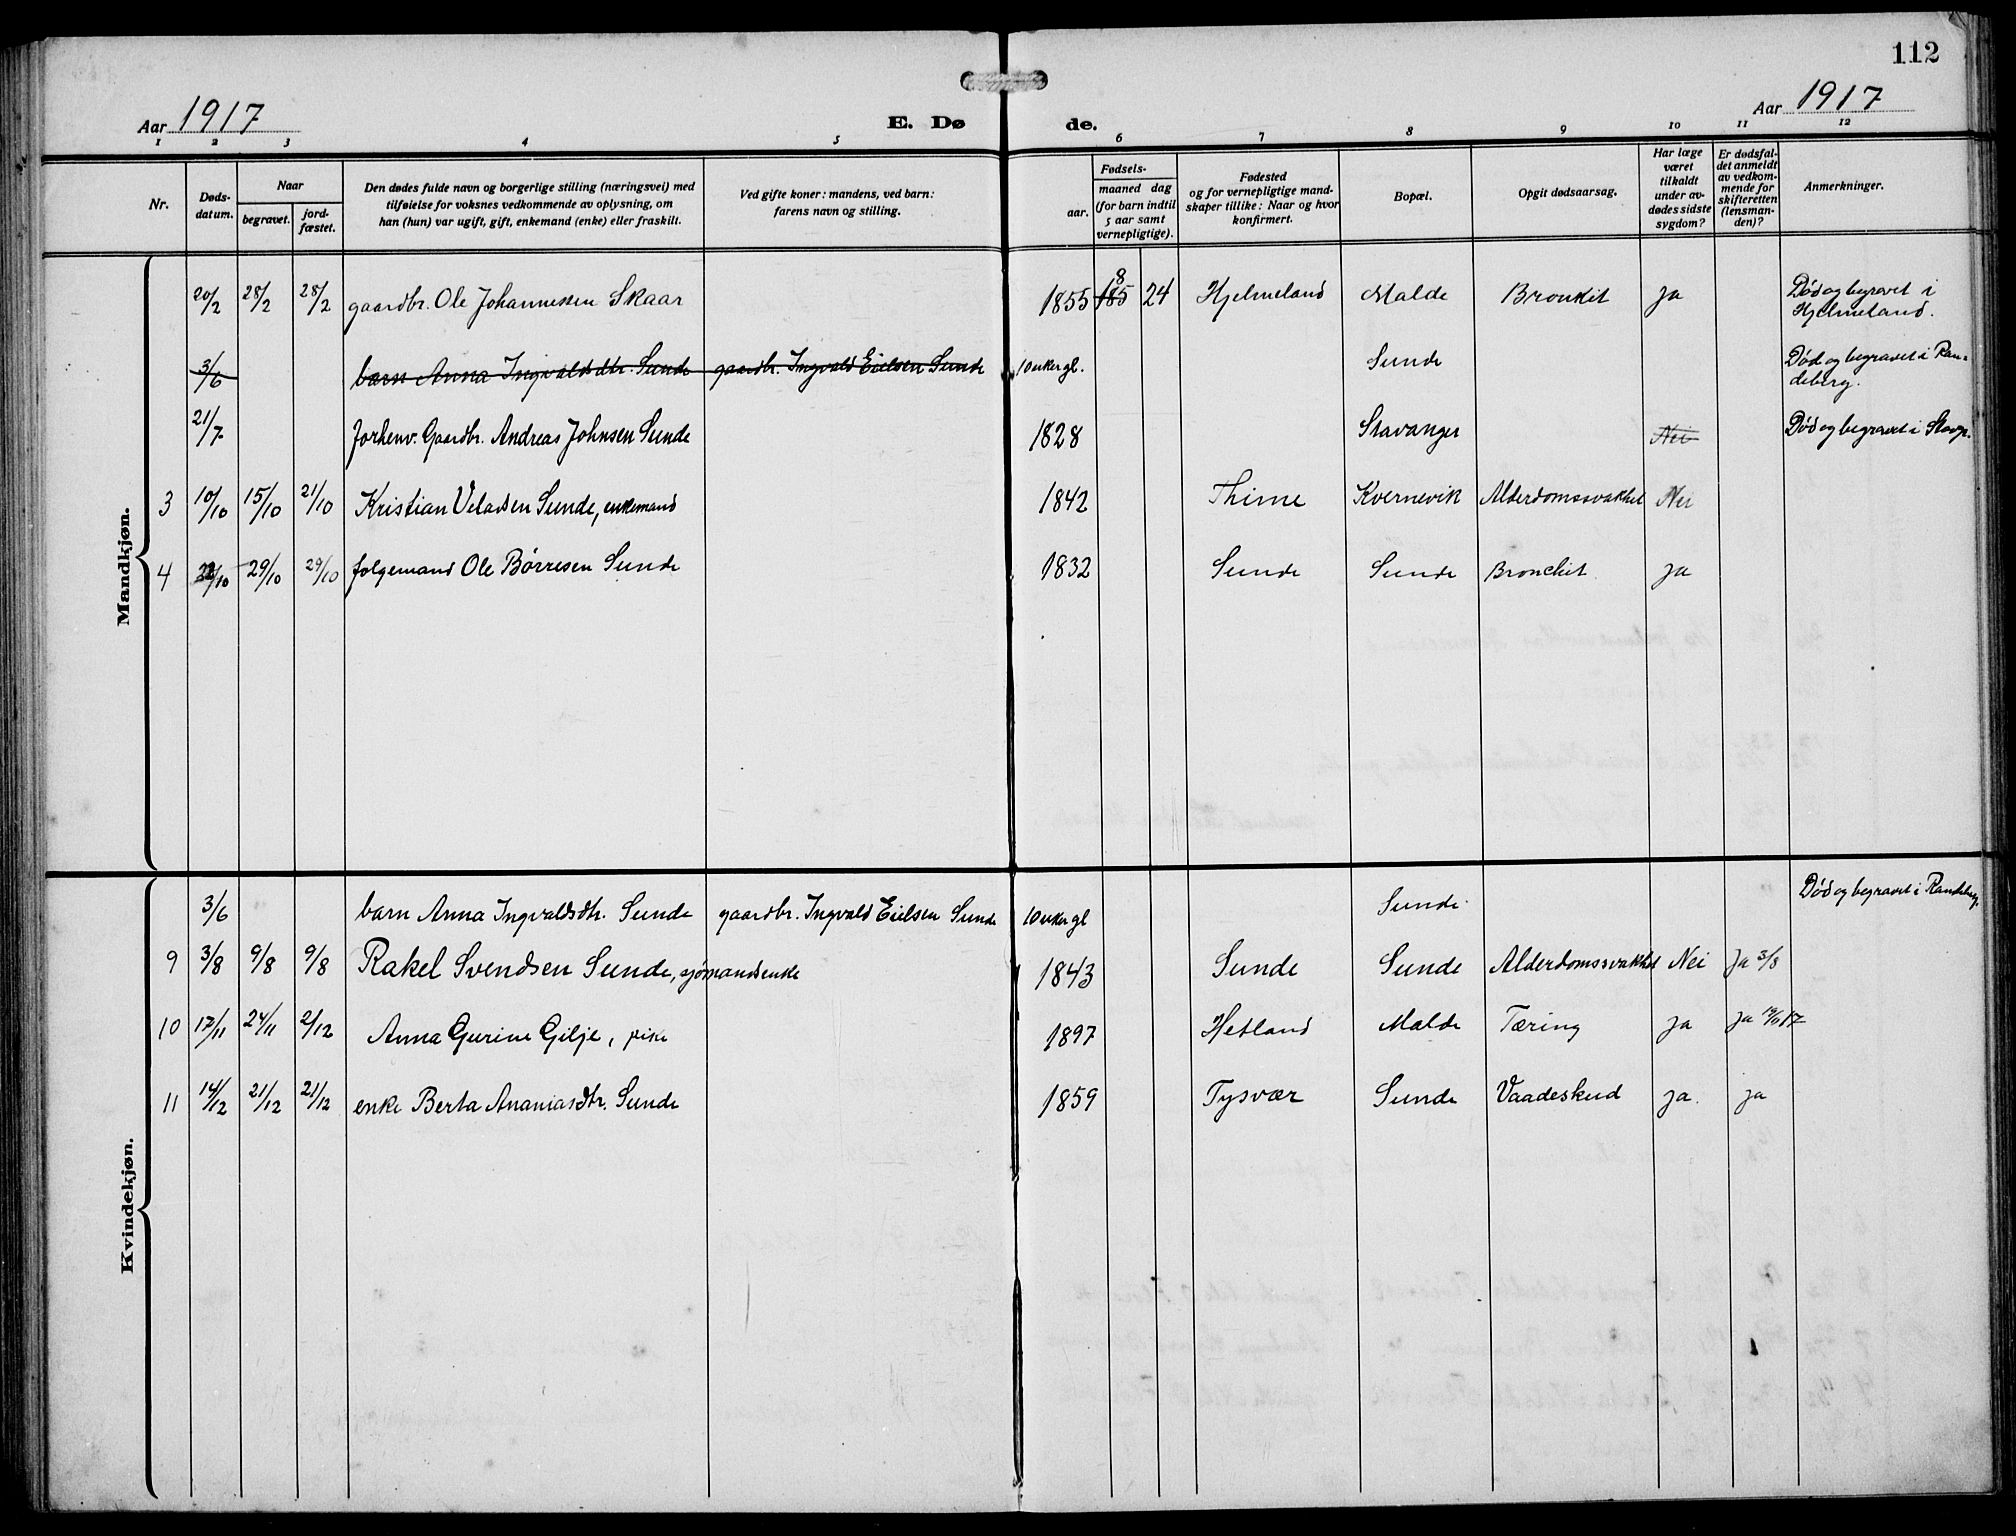 112
Aar 1917
E. Dø
de.
Aar 1917
1 2 3 4 5 6 7 8 9 10 11 12
Nr.
Døds-
datum.
Naar
begravet.
jord-
fæstet.
Den dødes fulde navn og borgerlige stilling (næringsvei) med
tilføielse for voksnes vedkommende av oplysning, om
han (hun) var ugift, gift, enkemand (enke) eller fraskilt.
Ved gifte koner: mandens, ved barn:
farens navn og stilling.
Fødsels-
aar.
maaned dag
(for barn indtil
5 aar samt
vernepligtige).
Fødested
og for vernepligtige mand-
skaper tillike: Naar og hvor
konfirmert.
Bopæl.
Opgit dødsaarsag.
Har læge
været
tilkaldt
under av-
dødes sidste
sygdom?
Er dødsfal-
det anmeldt
av vedkom-
mende for
skifteretten
(lensman-
den)?
Anmerkninger.
Mandkjøn.
20/2 28/2 28/2 gaardbr. Ole Johannessen Skaar 1855 185 8 24 Hjelmeland Malde Bronkit ja Død og begravet i
Hjelmeland.
3/6 barn Anna Ingvaldsdtr. Sunde gaardbr. Ingvald Eielsen Sunde 10 uker gl. Sunde Død og begravet i Ran-
deberg.
21/7 forhenv. Gaardbr. Andreas Johnsen Sunde 1828 Stavanger Nei Død og begravet i Stavgr.
3 10/10 15/10 21/10 Kristian Veladsen Sunde, enkemand 1842 Thime Kvernevik Alderdomssvakhet Nei
4 /10 29/10 29/10 følgemand Ole Børresen Sunde 1832 Sunde Sunde Bronchit ja
Kvindekjøn.
3/6 barn Anna Ingvaldsdtr. Sunde gaardbr. Ingvald Eielsen Sunde 10 uker gl Sunde Død og begravet i Randeberg.
9 3/8 9/8 9/8 Rakel Svendsen Sunde, sjømandsenke 1843 Sunde Sunde Alderdomssvakhet Nei Ja 3/8
10 17/11 24/11 2/12 Anna Gurine Gilje, pike 1897 Hetland Malde Tæring ja ja
11 14/12 21/12 21/12 enke Berta Ananiasdtr. Sunde 1859 Tysvær Sunde Vaadeskud ja. ja